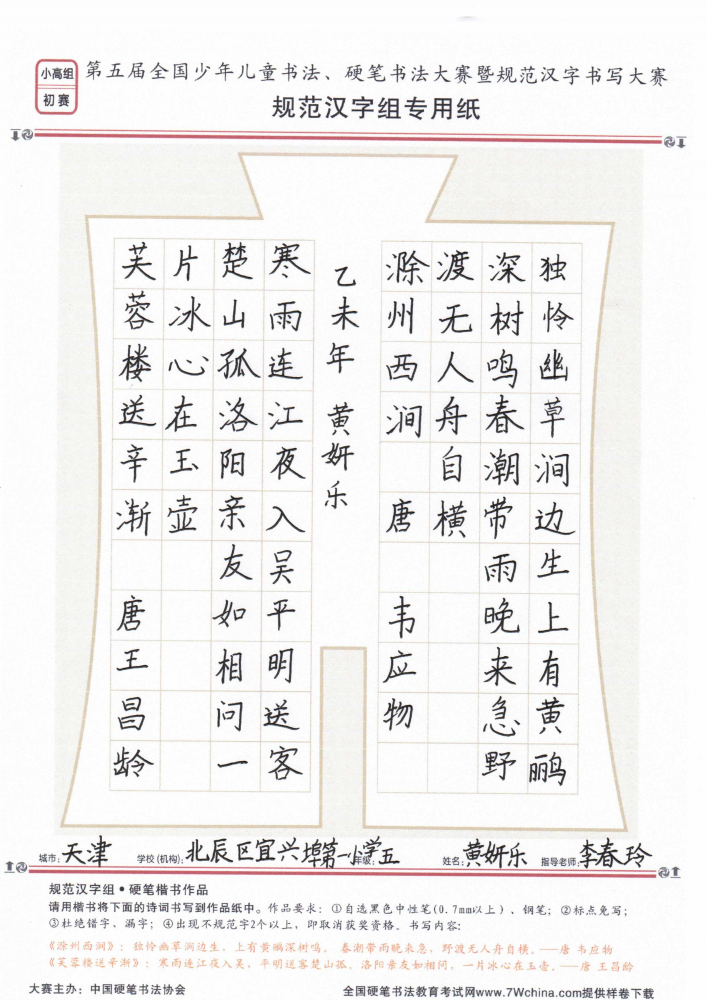 小高组
初赛
第五届全国少年儿童书法、硬笔书法大赛暨规范汉字书写大赛
规范汉字组专用纸
独怜幽草涧边生上有黄鹂
深树鸣春潮带雨晚来急野
渡无人舟自横
滁州西涧 唐 韦应物
乙未年 黄妍乐
寒雨连江夜入吴平明送客
楚山孤洛阳亲友如相问一
片冰心在玉壶
芙蓉楼送辛渐 唐王昌龄
城市:天津 学校(机构):北辰区宜兴埠第一小学 年级:五 姓名:黄妍乐 指导老师:李春玲
规范汉字组●硬笔楷书作品
请用楷书将下面的诗词书写到作品纸中。作品要求:①自选黑色中性笔(0.7mm以上)、钢笔;②标点免写;
③杜绝错字、漏字;④出现不规范字2个以上,即取消获奖资格。书写内容:
《滁州西涧》:独怜幽草涧边生,上有黄鹂深树鸣。春潮带雨晚来急,野渡无人舟自横。——唐 韦应物
《芙蓉楼送辛渐》:寒雨连江夜入吴,平明送客楚山孤。洛阳亲友如相问,一片冰心在玉壶。——唐 王昌龄
大赛主办:中国硬笔书法协会 全国硬笔书法教育考试网www.7Wchina.com提供样卷下载